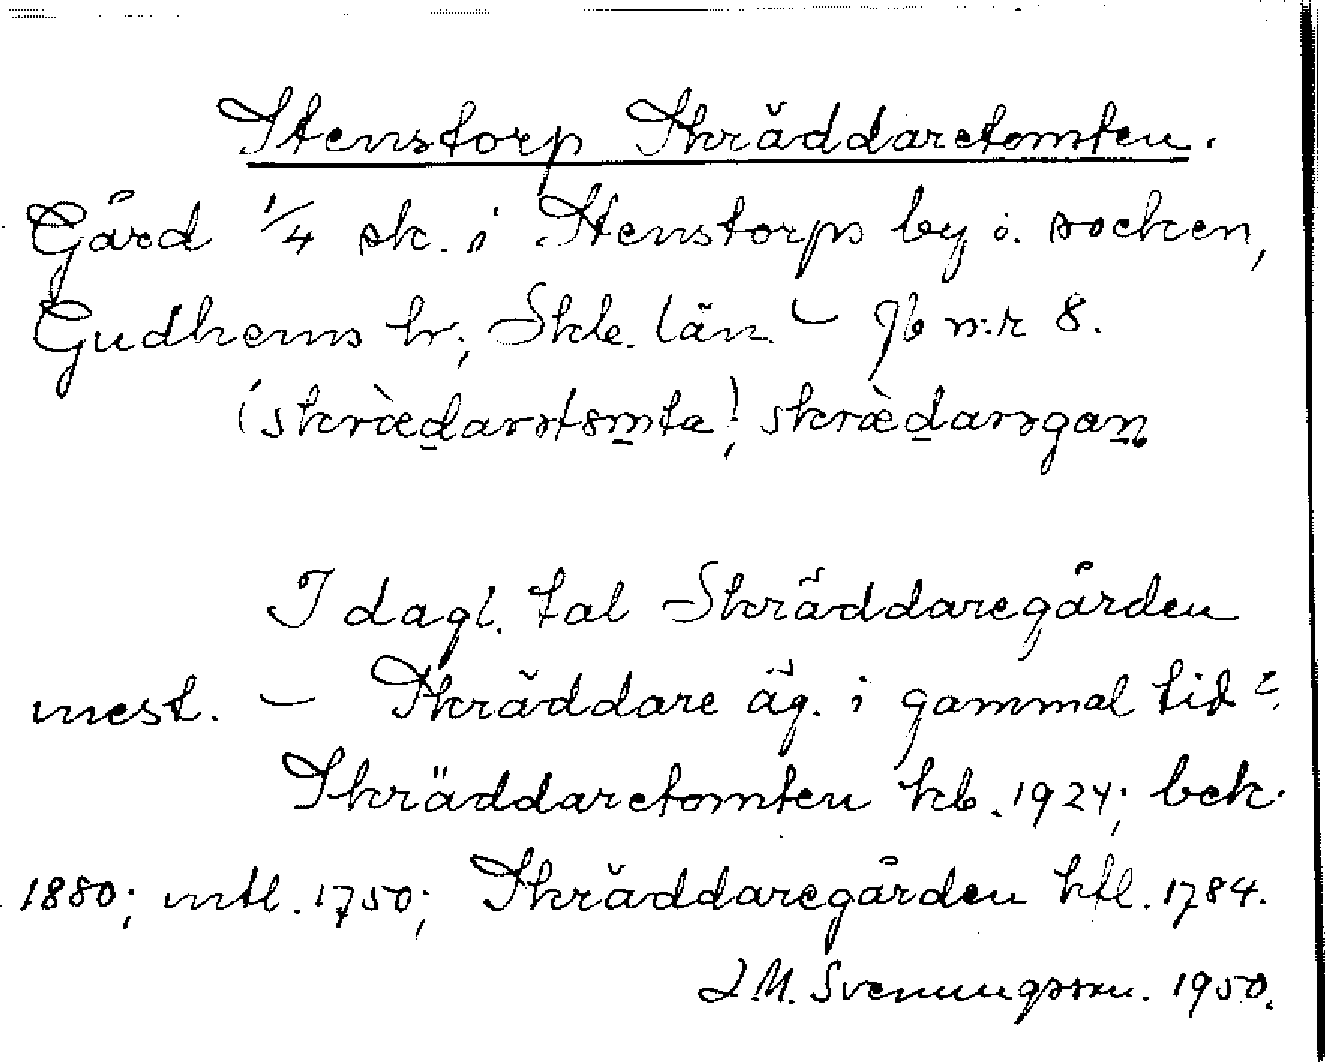 Stenstorp Skräddaretomten.
Gård 1/4 sk. i Stenstorps by o. socken,
Gudhems hr, Skbg. län – Jb nr 8.
(skræ̀darstomta), skræ̀darsgaɳ
I dagl. tal Skräddaregården
mest. – Skräddare äg. i gammal tid?
Skräddaretomten kb. 1924; bek.
1880; mtl. 1750; Skräddaregården ktl. 1784.
J M. Svenungsson. 1950.